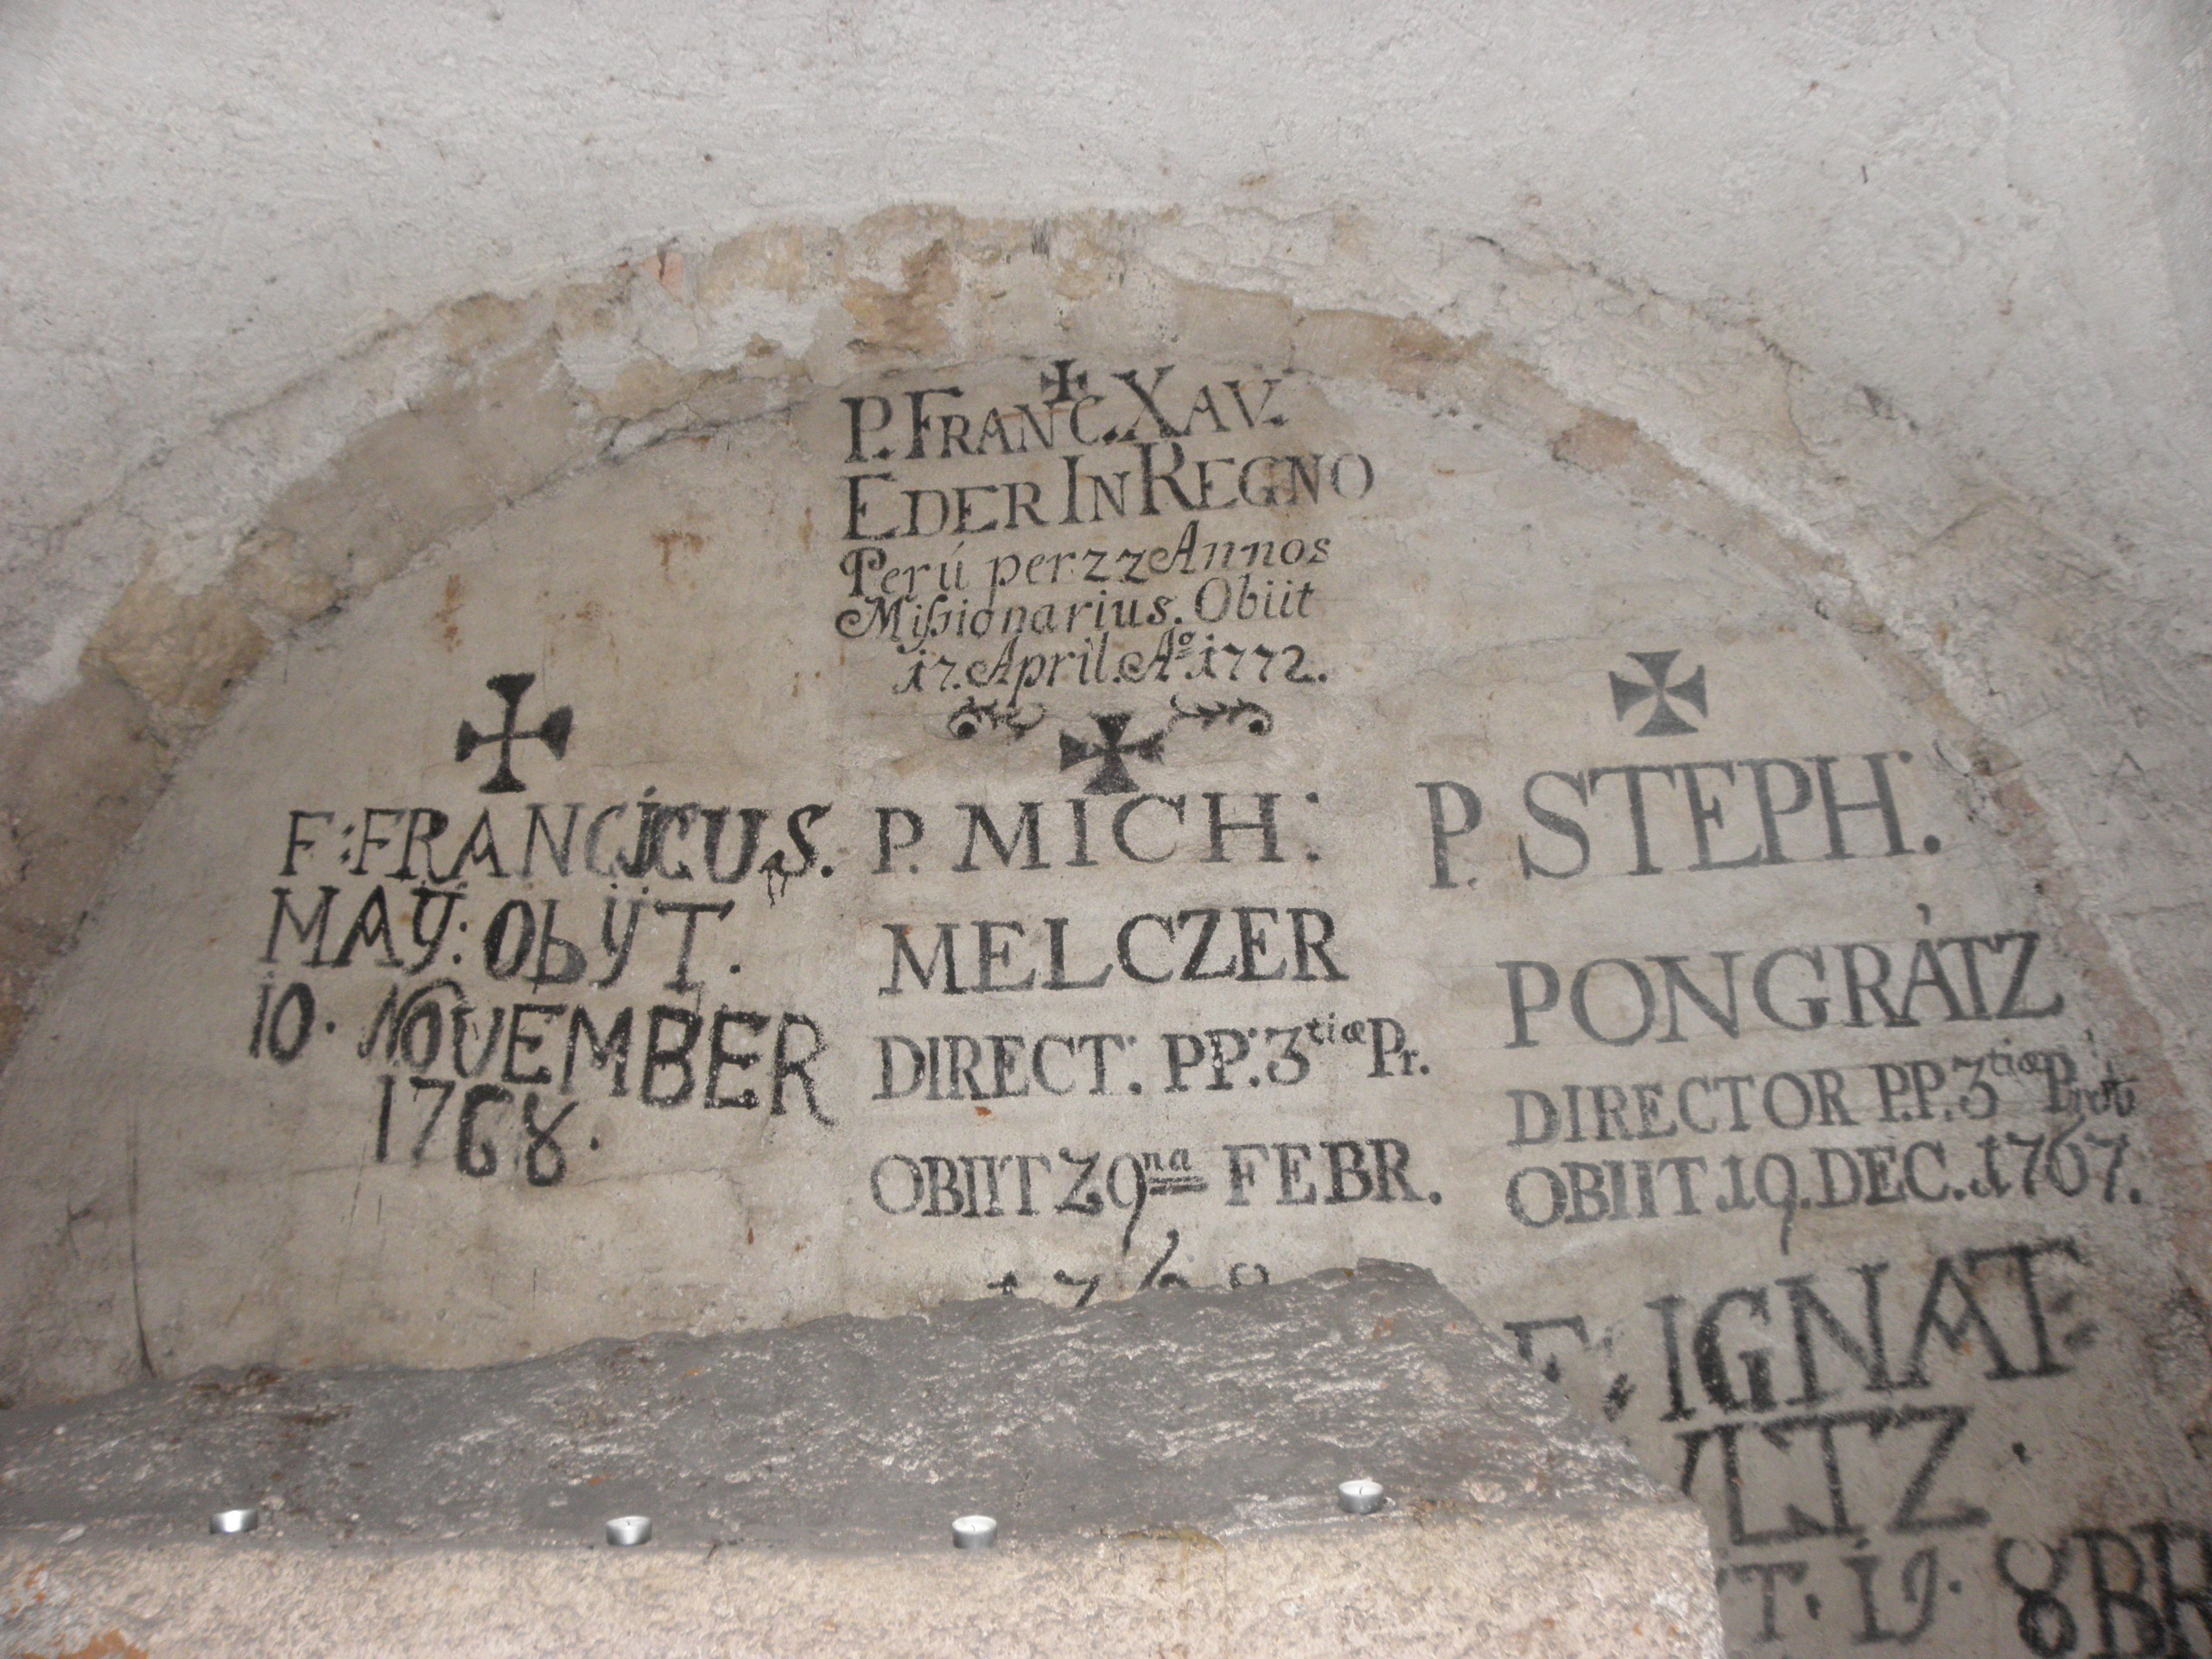 P. FRANC. XAV.
EDER IN REGNO
Perú per 22 Annos
Missionarius. Obiit
17. April. Aº. 1772.
F: FRANCICUS.
MAÿ: ObÿT.
10. NOVEMBER
1768.
P. MICH:
MELCZER
DIRECT: PP: 3tiæ Pr.
OBIIT 29na FEBR.
1768
P. STEPH:
PONGRÁTZ
DIRECTOR P.P. 3tiæ
OBIIT. 19. DEC. 1767.
F: IGNAT:
LTZ.
T. 19. 8BR